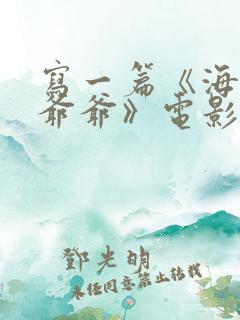 寫一篇《海
爺爺》電影
鄧光明
未經同意禁止轉載